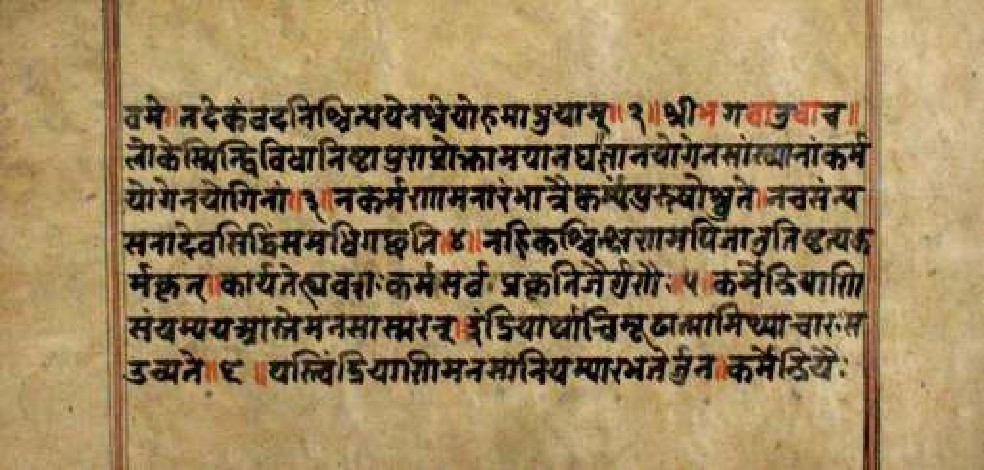 वमे॥तदेकंवदनिश्चित्ययेनश्रेयोहमाप्नुयाम्॥२॥श्रीभगवानुवाच॥
लोकेस्मिन्द्विविधानिष्टापुराप्रोक्तामयानघज्ञानयोगेनसांख्यानांकर्म
योगेनयोगिनां॥३॥नकर्मणामनारंभान्नैष्कर्म्यंपुरुषोश्नुते॥नचसंन्य
सनादेवसिद्धिंसमधिगछति॥४॥नहिकश्चित्क्षणमपिजातुतिष्टत्यक
र्मकृत्॥कार्यतेह्यवशःकर्मसर्वःप्रकृतिजैर्गुणैः॥५॥कर्मेंद्रियाणि
संयम्ययआस्तेमनसास्मरन्॥इंद्रियार्थान्विमूढात्मामिथ्याचारःस
उच्यते॥६॥यस्त्विंद्रियाणिमनसानियम्यारभतेर्जुन॥कर्मेंद्रियैः